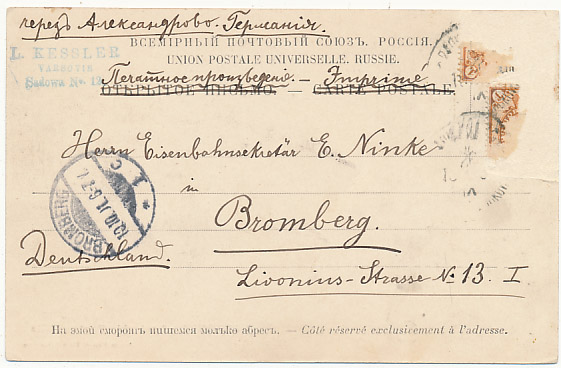 черезъ Александрово. Германія.
ВСЕМІРНЫЙ ПОЧТОВЫЙ СОЮЗЪ. РОССІЯ.
UNION POSTALE UNIVERSELLE. RUSSIE.
L. KESSLER
VARSOVIE
Sadowa No. 12
Печатное произведеніе. — Imprimé
ОТКРЫТОЕ ПИСЬМО. — CARTE POSTALE.
Herrn Eisenbahnsekretär E. Ninke
in
Bromberg.
Deutschland.
Livonius-Strasse № 13. I
BROMBERG
* 1 c
На этой сторонѣ пишется только адресъ. — Côté réservé exclusivement à l'adresse.